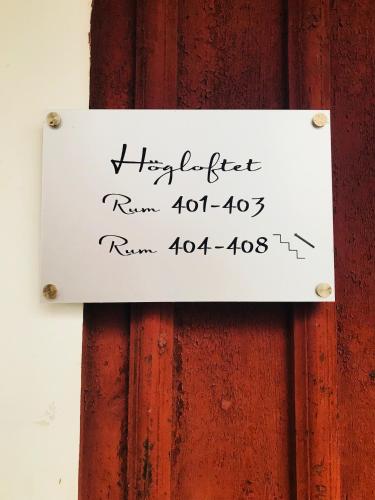 Högloftet
Rum 401-403
Rum 404-408